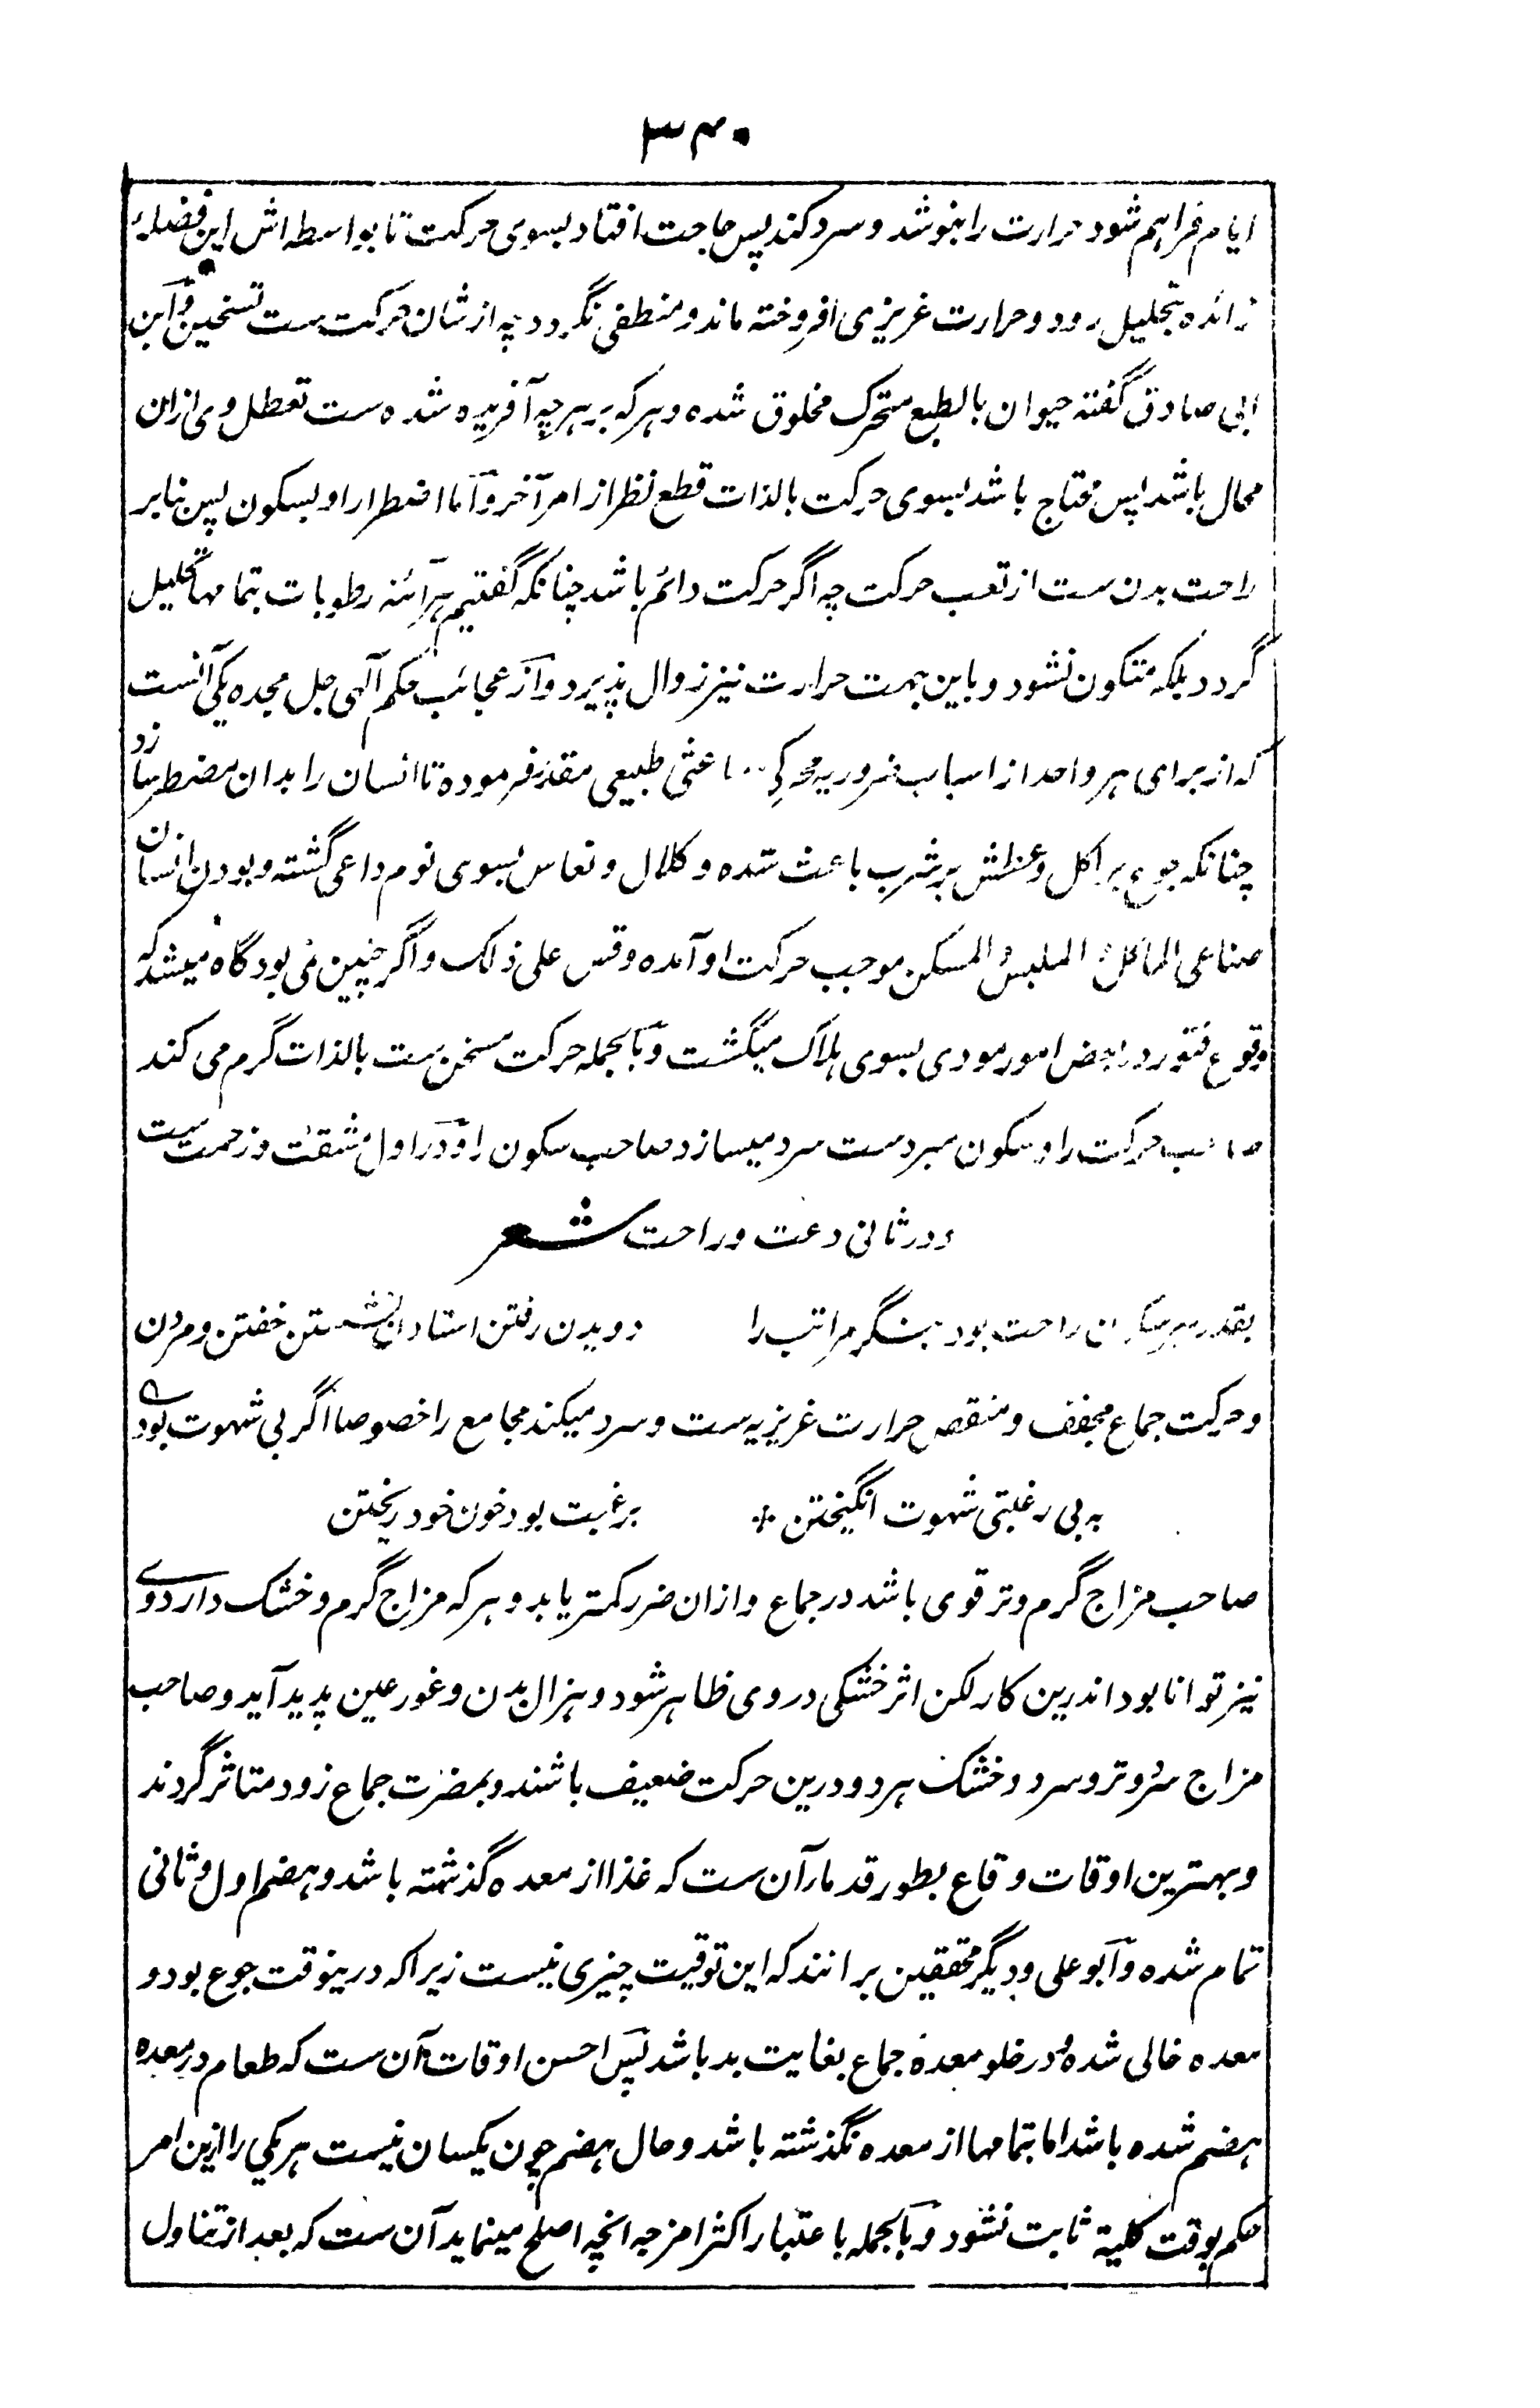 ۳۴۰
ایام فراهم شود حرارت را بنوشد و سرد کند پس حاجت افتاد بسوی حرکت تا بواسطه اش این فضلهٔ
زائده بتحلیل رود و حرارت غریزی افروخته ماند و منطفی نگردد چه از شان حرکت ست تسخین و ابن
ابی صادق گفته حیوان بالطبع متحرک مخلوق شده و هر که بر هر چه آفریده شده ست تعطل وی ازان
محال باشد پس محتاج باشد بسوی حرکت بالذات قطع نظر از امر آخر و اما اضطرار او بسکون پس بنابر
راحت بدن ست از تعب حرکت چه اگر حرکت دائم باشد چنانکه گفتیم هر آئنه رطوبات بتمامها تحلیل
گردد بلکه متکون نشود و باین جهت حرارت نیز زوال پذیرد و از عجائب حکم آلهی جل مجده یکی آنست
که از برای هر واحد از اسباب ضروریه محرکی باعثی طبیعی مقدر فرموده تا انسان را بدان مضطر سازد
چنانکه جوع بر اکل و عطش بر شرب باعث شده و کلال و نعاس بسوی نوم داعی گشته و بودن انسان
صناعی الماکل و الملبس و المسکن موجب حرکت او آمده و قس علی ذلک و اگر چنین نمی بود گاه میشد که
وقوع فتور در بعض امور مودی بسوی هلاک میگشت و بالجمله حرکت مسخن ست بالذات گرم می کند
صاحب حرکت را و سکون مبرد ست سرد میسازد صاحب سکون را و در اول مشقت و زحمت ست
و در ثانی دعت و راحت شعر
بقدر هر سکون راحت بود بنگر مراتب را دویدن رفتن استادن نشستن خفتن و مردن
و حرکت جماع مجفف و منقص حرارت غریزیه ست و سرد میکند مجامع را خصوصا اگر بی شهوت بود
به بی رغبتی شهوت انگیختن برغبت بود خون خود ریختن
صاحب مزاج گرم و تر قوی باشد در جماع و ازان ضرر کمتر یابد و هر که مزاج گرم و خشک دارد وی
نیز توانا بود اندرین کار لکن اثر خشکی در وی ظاهر شود و هزال بدن و غور عین پدید آید و صاحب
مزاج سرد و تر و سرد و خشک هر دو درین حرکت ضعیف باشند و بمضرت جماع زود متاثر گردند
و بهترین اوقات وقاع بطور قدما آن ست که غذا از معده گذشته باشد و هضم اول و ثانی
تمام شده و ابو علی و دیگر محققین بر انند که این توقیت چیزی نیست زیرا که درینوقت جوع بود و
معده خالی شده و در خلو معده جماع بغایت بد باشد پس احسن اوقات آن ست که طعام در معده
هضم شده باشد اما بتمامها از معده نگذشته باشد و حال هضم چون یکسان نیست هر یکی را ازین امر
حکم بوقت کلیة ثابت نشود و بالجمله باعتبار اکثر امزجه انچه اصلح مینماید آن ست که بعد از تناول